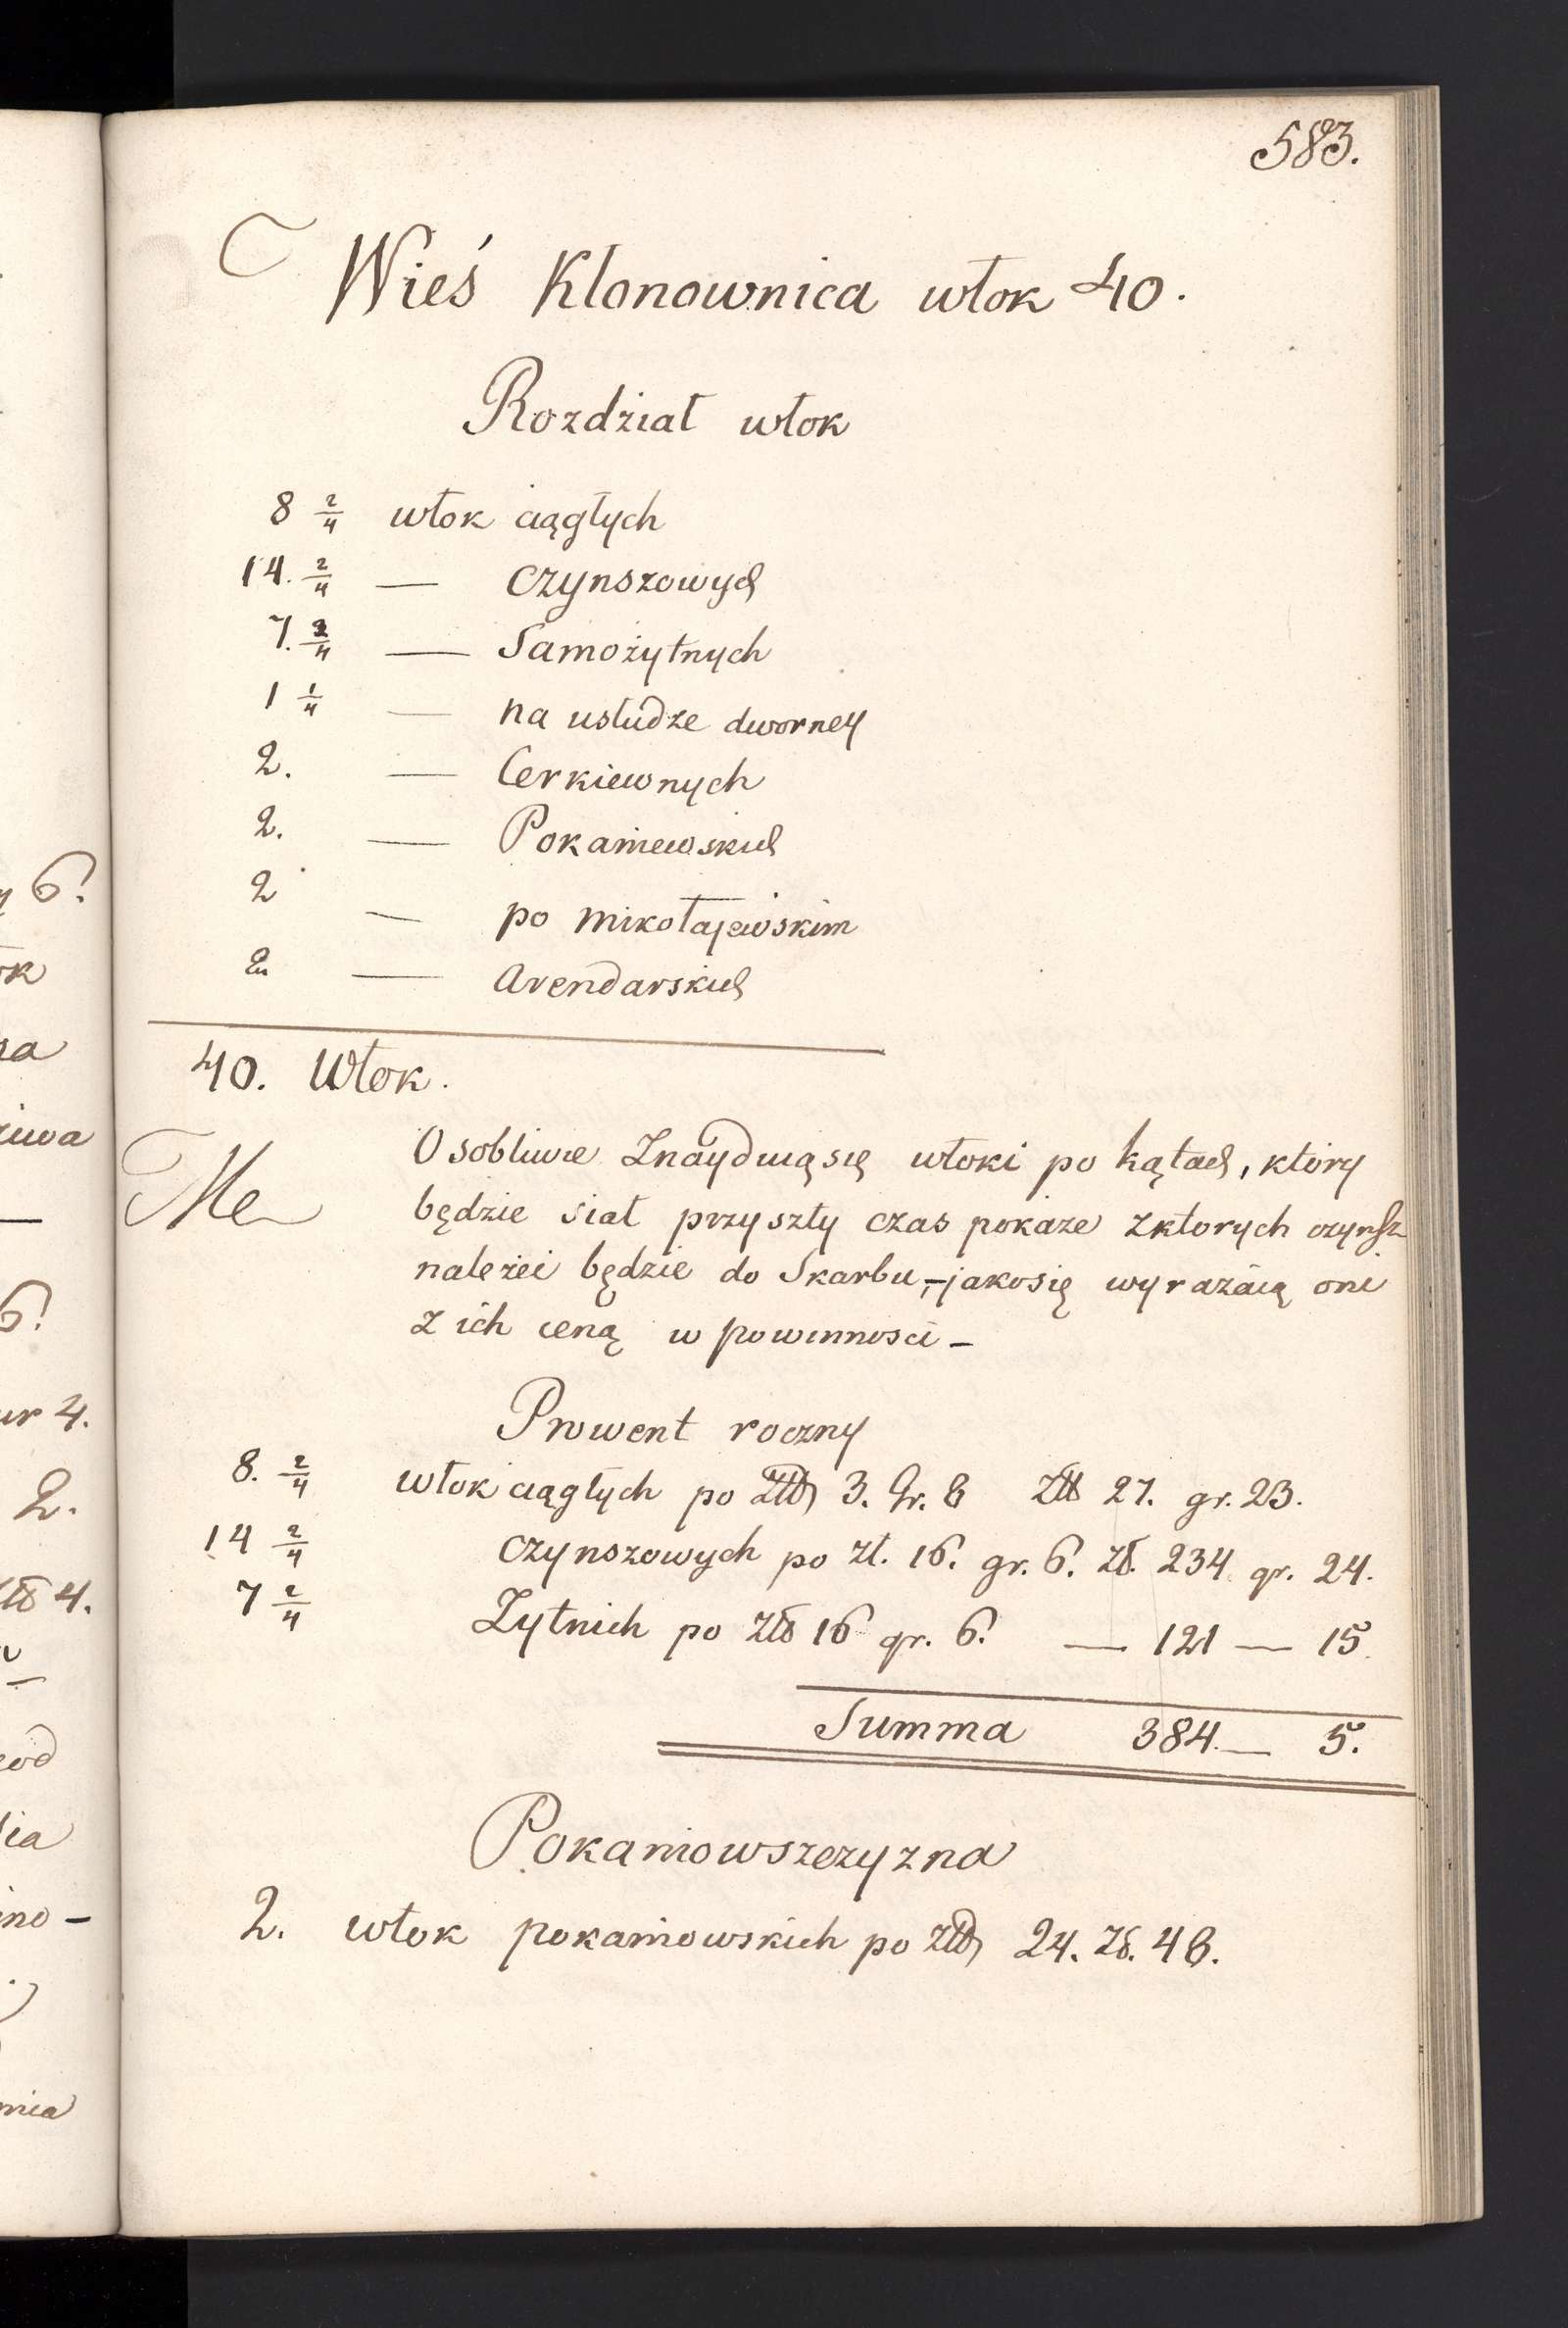 583.
Wieś Klonownica włok 40.
Rozdział włok
8 2/4 włok ciągłych
14. 2/4 — czynszowych
7. 3/4 — Samożytnych
1 1/4 — na usłudze dworney
2. — Cerkiewnych
2. — Pokaniewskich
2 — po Mikołajewskim
2. — Arendarskich
40. Włok.
Osobliwie Znayduią się włoki po kątach, który
będzie siał przyszły czas pokaże z ktorych czynsz
należei będzie do Skarbu,–jakosię wyrażaią one
z ich ceną w powinnosci –
Prowent roczny
8. 2/4 włok ciągłych po Złł 3. Gr. 8 Złł 27. gr. 23.
14 2/4 czynszowych po zł. 16. gr. 6. zł. 234 gr. 24.
7 2/4 Zytnich po Złł 16 gr. 6. — 121 — 15.
Summa 384. — 5.
Pokaniowszczyzna
2. włok pokaniowskich po złł 24. Zł. 48.